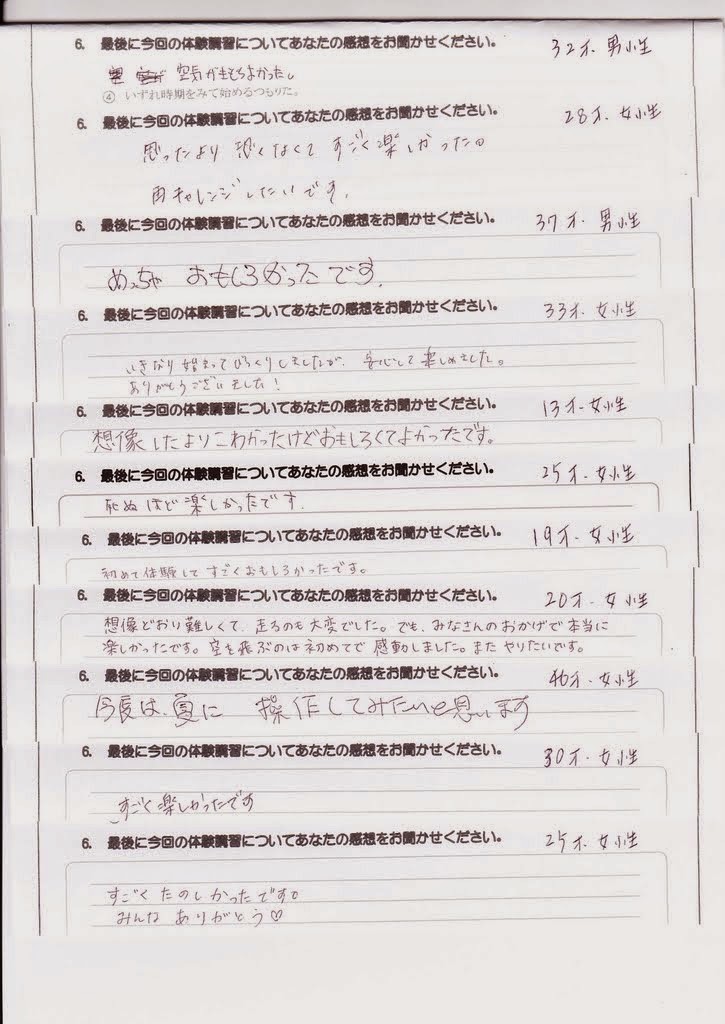 6. 最後に今回の体験講習についてあなたの感想をお聞かせください。 32才 男性
空気がきもちよかった。
④ いずれ時期をみて始めるつもりだ。
6. 最後に今回の体験講習についてあなたの感想をお聞かせください。 28才. 女性
思ったより恐くなくてすごく楽しかった。
再チャレンジしたいです。
6. 最後に今回の体験講習についてあなたの感想をお聞かせください。 37才. 男性
めっちゃ おもしろかったです。
6. 最後に今回の体験講習についてあなたの感想をお聞かせください。 33才. 女性
いきなり始まってびっくりしましたが、安心して楽しめました。
ありがとうございました!
6. 最後に今回の体験講習についてあなたの感想をお聞かせください。 13才. 女性
想像したよりこわかったけどおもしろくてよかったです。
6. 最後に今回の体験講習についてあなたの感想をお聞かせください。 25才. 女性
死ぬほど楽しかったです.
6. 最後に今回の体験講習についてあなたの感想をお聞かせください。 19才. 女性
初めて体験してすごくおもしろかったです。
6. 最後に今回の体験講習についてあなたの感想をお聞かせください。 20才. 女性
想像どおり難しくて、走るのも大変でした。でも、みなさんのおかげで本当に
楽しかったです。空を飛ぶのは初めてで感動しました。またやりたいです。
6. 最後に今回の体験講習についてあなたの感想をお聞かせください。 46才. 女性
今度は、夏に 操作してみたいと思います
6. 最後に今回の体験講習についてあなたの感想をお聞かせください。 30才. 女性
すごく楽しかったです
6. 最後に今回の体験講習についてあなたの感想をお聞かせください。 25才. 女性
すごくたのしかったです。
みんな ありがとう♡